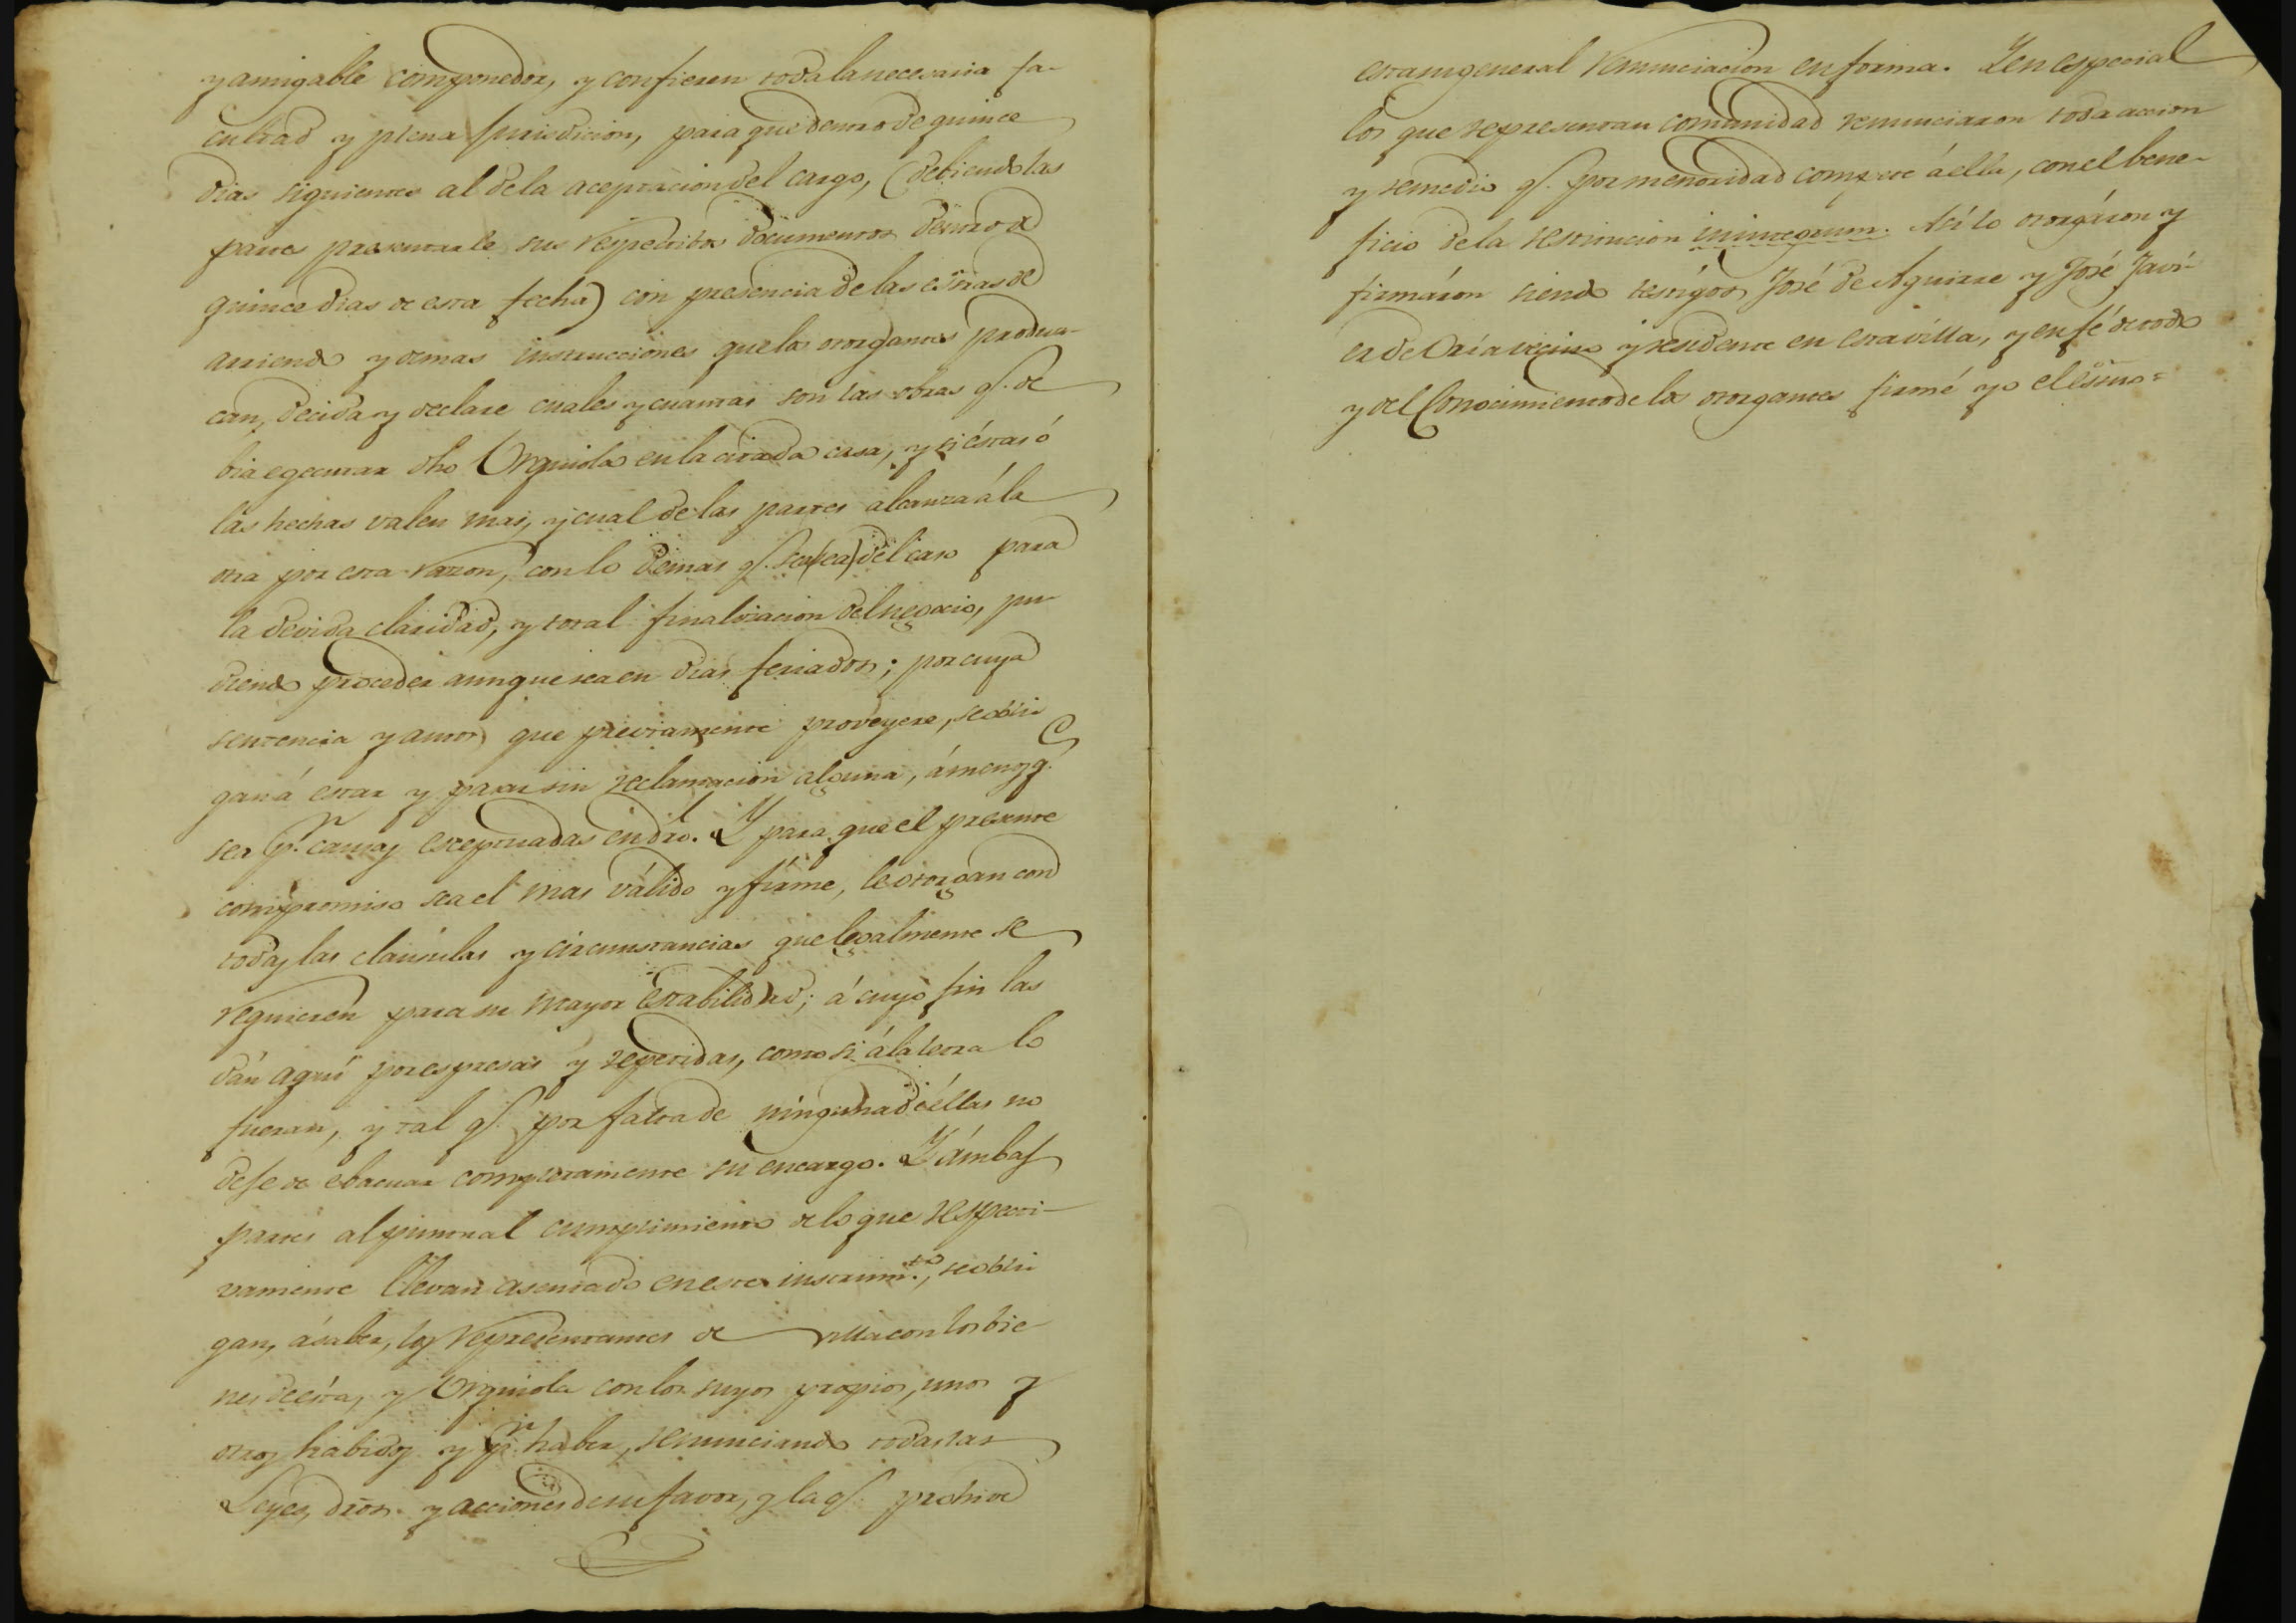 y amigable componedor, y confieren toda la necesaria fa-
cultad y plena jurisdicion, para que dentro de quince
dias siguientes al de la aceptacion del cargo, (debiendo las
partes presentarle sus respectibos documentos dentro de
quince dias de esta fecha) con presencia de las esrãs de
arriendo y demas instrucciones que los otorgantes produz-
can, decida y declare cuales y cuantas son las obras q.e de
bia egecutar dho Urquiola en la citada casa, y si éstas ó
las hechas valen mas, y cual de las partes alcanza á la
otra por esta razon, con lo demas q.e sea (sea) del caso para
la devida claridad, y total finalizacion del negocio, pu
diendo proceder aunque sea en dias feriados; por cuya
sentencia y autos que previamente proveyere, se obli
gan á estar y pasar sin reclamacion alguna, á menos q.e
sea p.r causas esceptuadas en dro. Y para que el presente
compromiso sea el mas válido y firme, le otorgan con
todas las clausulas y circunstancias que legalmente se
requieren para su mayor estabilidad; á cuyo fin las
dán aqui por espresas y repetidas, como si á la letra lo
fueran, y tal q.e por falta de ninguna de éllas no
deje de ebacuar completamente su encargo. Y ámbas
partes al puntual cumplimiento de lo que respecti-
vamente llevan asentado en este instrum.to, se obli
gan, á saber, los representantes de villa con los bie-
nes de ésta, y Urquiola con los suyos propios, unos y
otros habidos y p.r haber, renunciando todas las
Leyes, drõs. y acciones de su favor, y la q.e prohive
esta en general renunciacion en forma. Y en especial
los que representan comunidad renunciaron toda accion
y remedio q.e por menoridad compete á ella, con el bene-
ficio de la restitucion in integrum. Así lo otorgáron y
firmáron siendo testigos José de Aguirre y José Javi-
er de Oria vecino y residente en esta villa, y en fé de todo
y del conocimiento de los otorgantes firmé yo el esnõ =